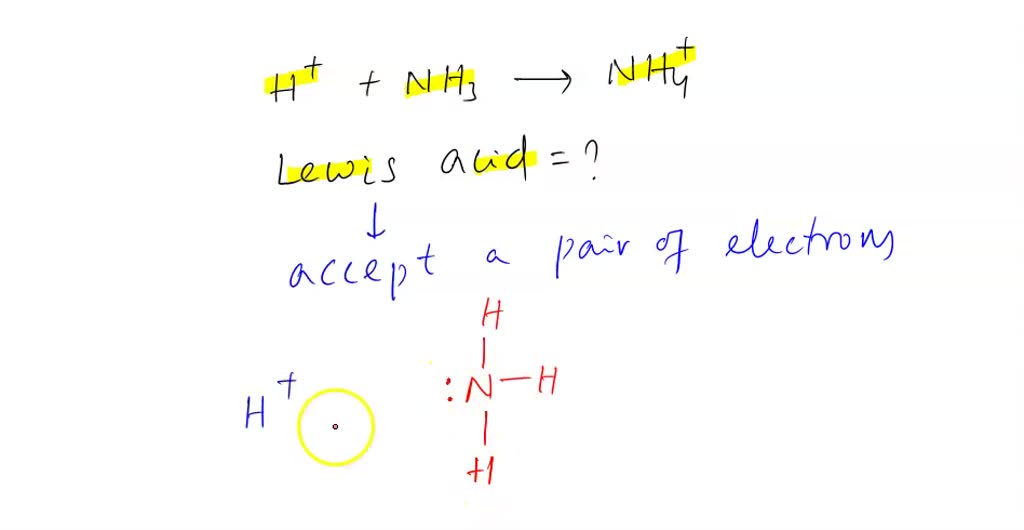 H⁺ + NH₃ → NH₄⁺
Lewis acid = ?
↓
accept a pair of electrons
H
|
H⁺ :N—H
|
H